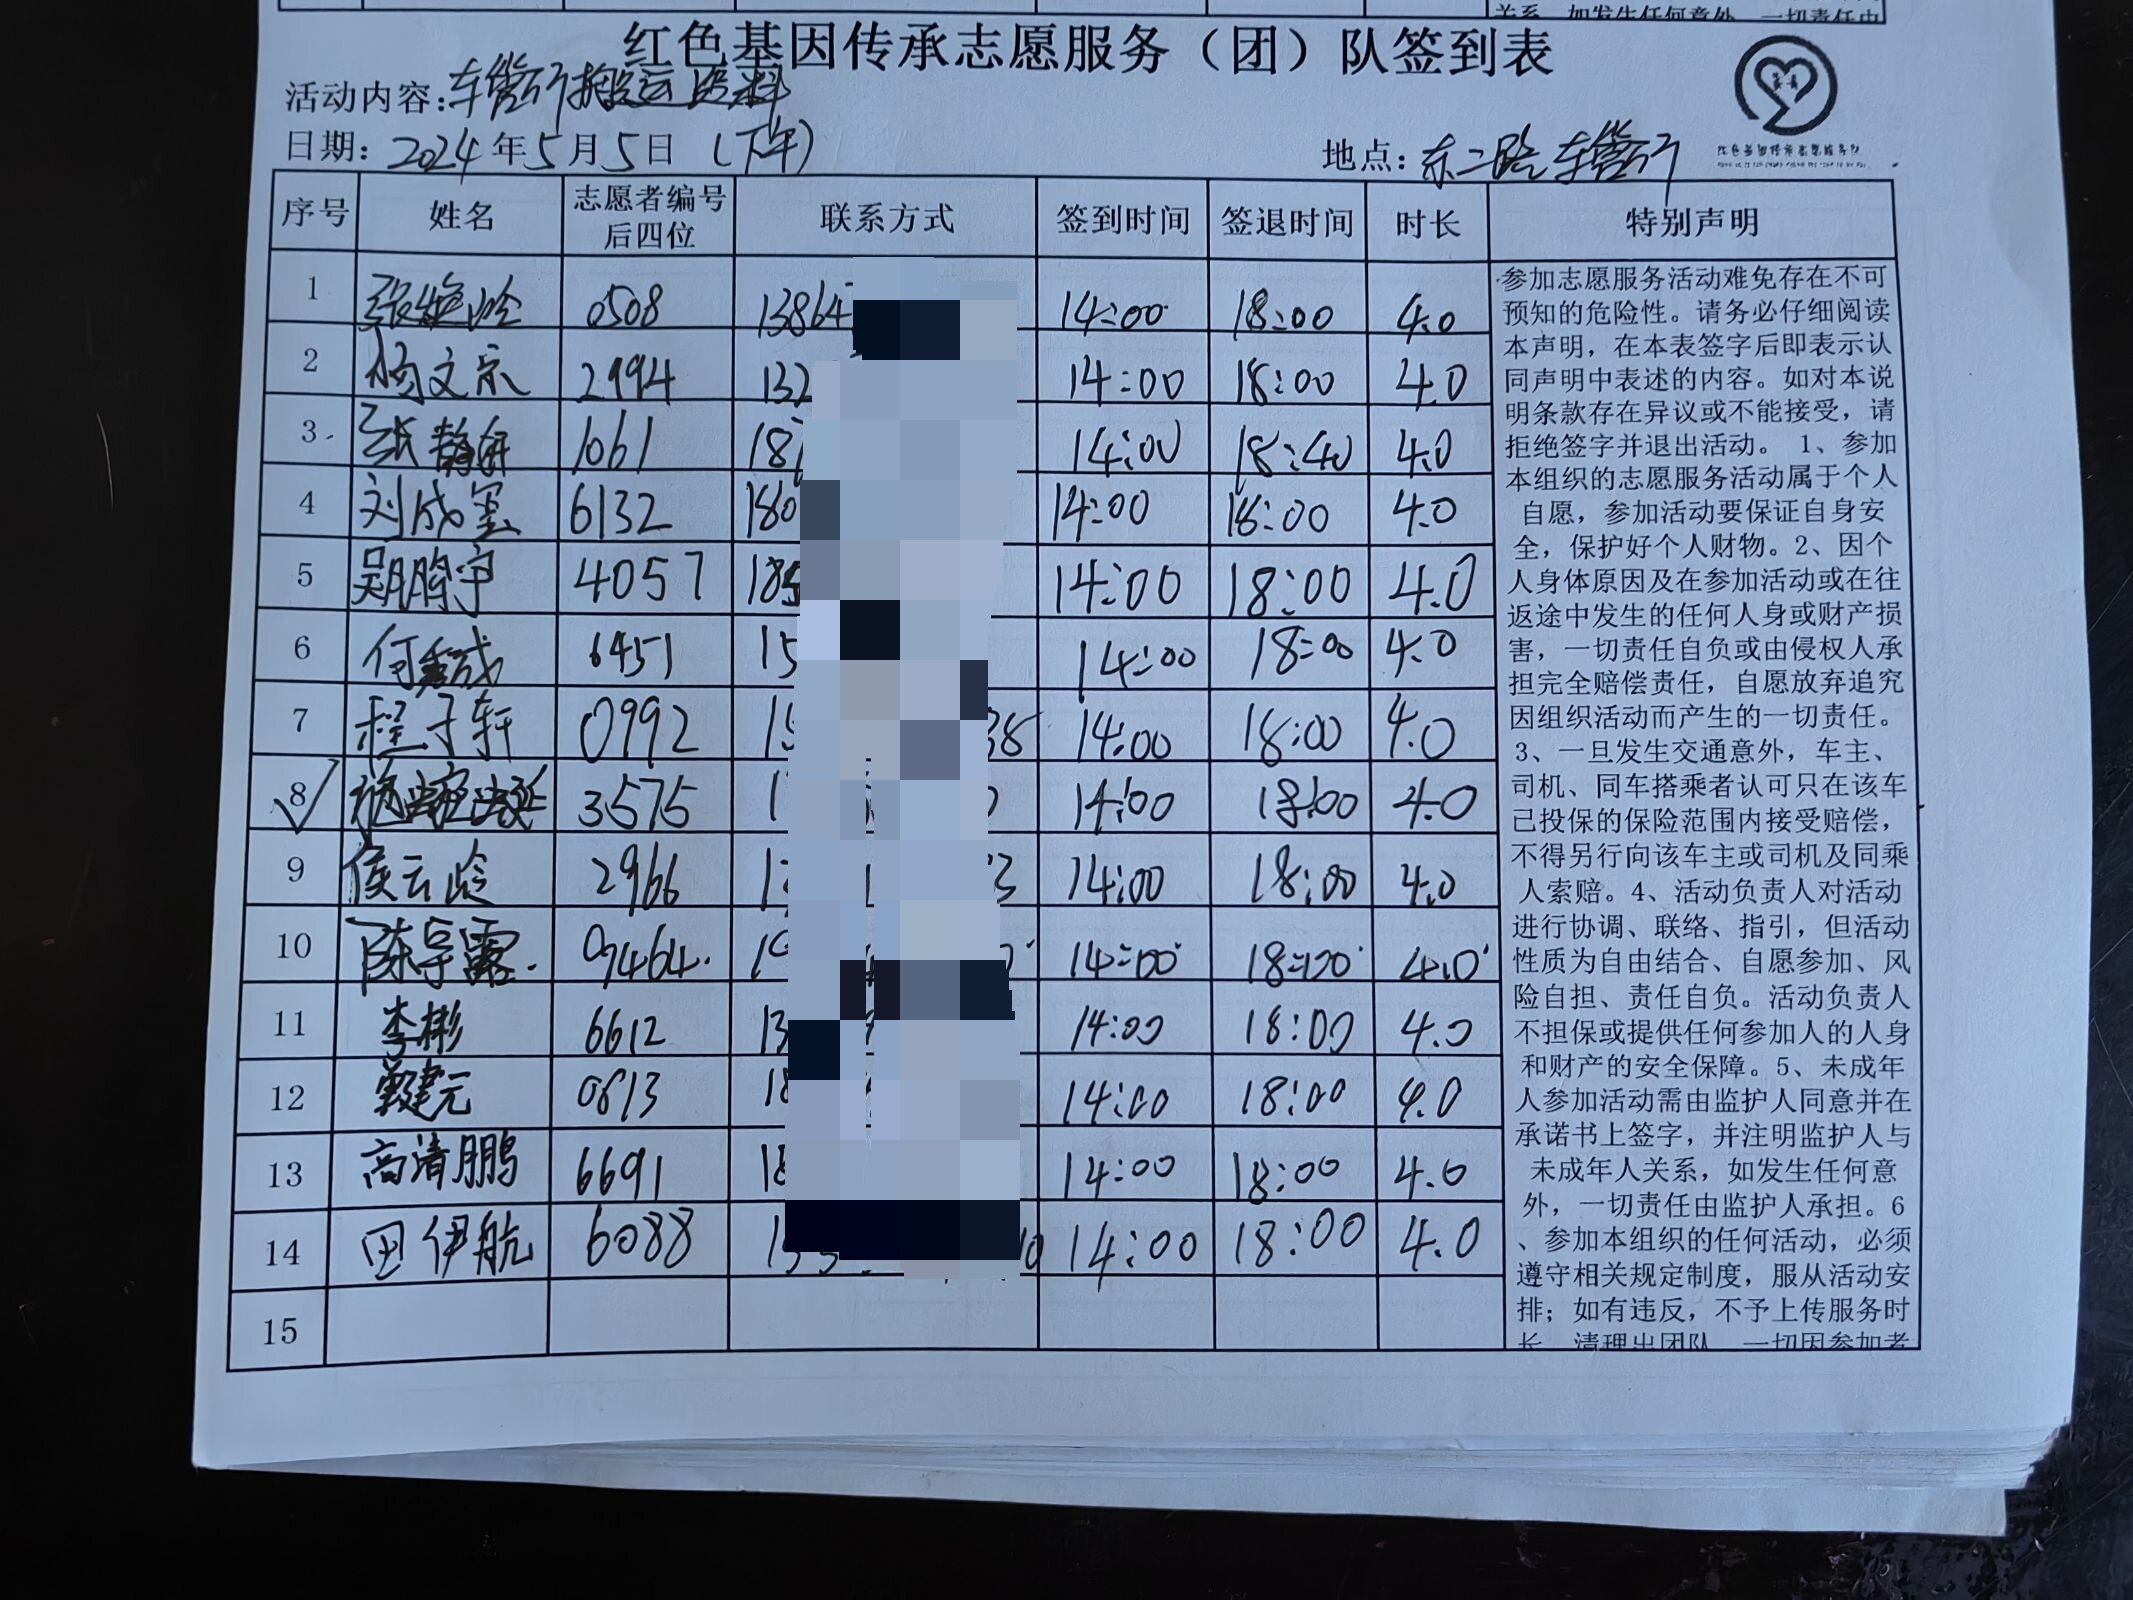 关系，如发生任何意外，一切责任由
红色基因传承志愿服务（团）队签到表
活动内容：车管所搬运资料
日期：2024年5月5日（下午）
地点：东二路车管所
序号 姓名 志愿者编号后四位 联系方式 签到时间 签退时间 时长 特别声明
1 0508 13864 14:00 18:00 4.0
2 杨文宗 2994 132 14:00 18:00 4.0
3 张静妍 1061 187 14:00 18:40 4.0
4 刘成玺 6132 180 14:00 18:00 4.0
5 吴鹏宇 4057 185 14:00 18:00 4.0
6 何成 6451 15 14:00 18:00 4.0
7 程子轩 0992 15 38 14:00 18:00 4.0
8 3575 1 14:00 18:00 4.0
9 侯云岭 2966 13 14:00 18:00 4.0
10 陈宇露 9464 14:00 18:00 4.0
11 李彬 6612 13 14:00 18:00 4.0
12 健元 0613 18 14:00 18:00 4.0
13 高清鹏 6691 18 14:00 18:00 4.0
14 田伊航 6088 15 10 14:00 18:00 4.0
15
参加志愿服务活动难免存在不可
预知的危险性。请务必仔细阅读
本声明，在本表签字后即表示认
同声明中表述的内容。如对本说
明条款存在异议或不能接受，请
拒绝签字并退出活动。 1、参加
本组织的志愿服务活动属于个人
自愿，参加活动要保证自身安
全，保护好个人财物。2、因个
人身体原因及在参加活动或在往
返途中发生的任何人身或财产损
害，一切责任自负或由侵权人承
担完全赔偿责任，自愿放弃追究
因组织活动而产生的一切责任。
3、一旦发生交通意外，车主、
司机、同车搭乘者认可只在该车
已投保的保险范围内接受赔偿，
不得另行向该车主或司机及同乘
人索赔。4、活动负责人对活动
进行协调、联络、指引，但活动
性质为自由结合、自愿参加、风
险自担、责任自负。活动负责人
不担保或提供任何参加人的人身
和财产的安全保障。5、未成年
人参加活动需由监护人同意并在
承诺书上签字，并注明监护人与
未成年人关系，如发生任何意
外，一切责任由监护人承担。6
、参加本组织的任何活动，必须
遵守相关规定制度，服从活动安
排；如有违反，不予上传服务时
长，清理出团队，一切因参加者